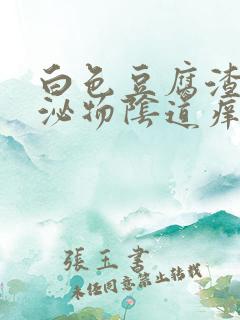 白色豆腐渣
泌物陰道癢
張玉書
未经同意禁止转载